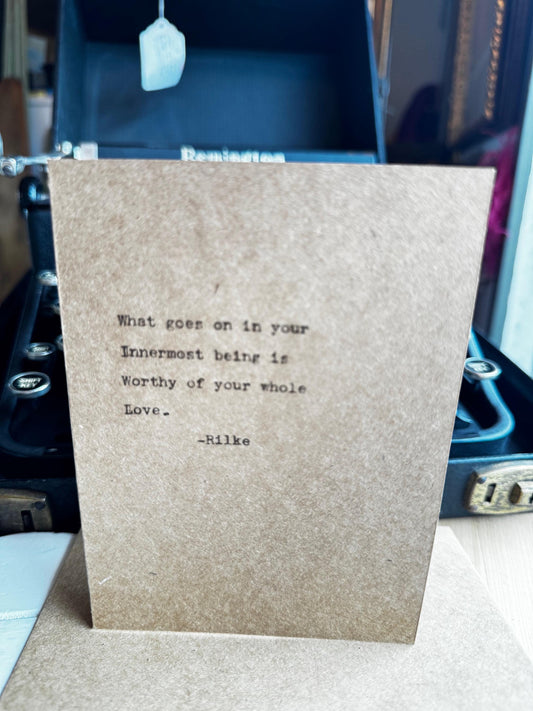 Remington
What goes on in your
Innermost being is
Worthy of your whole
Love.
-Rilke
SHIFT
KEY